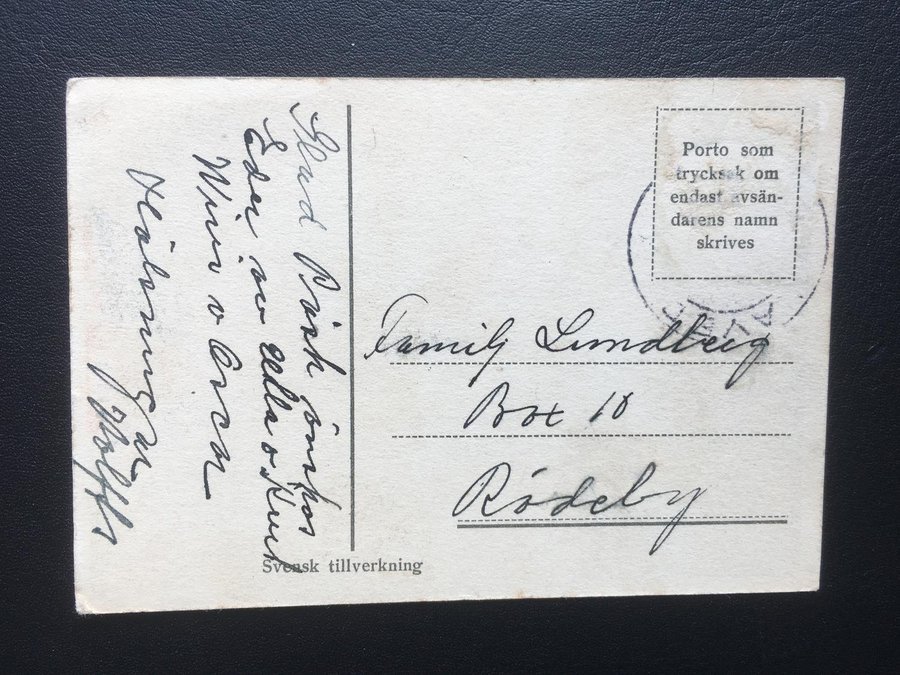 Glad Påsk önskas
Eder av Ulla o Kurt
Wivi o
Hälsningar
Porto som
trycksak om
endast avsän-
darens namn
skrives
Familj Lundberg
Box 10
Rödeby
Svensk tillverkning